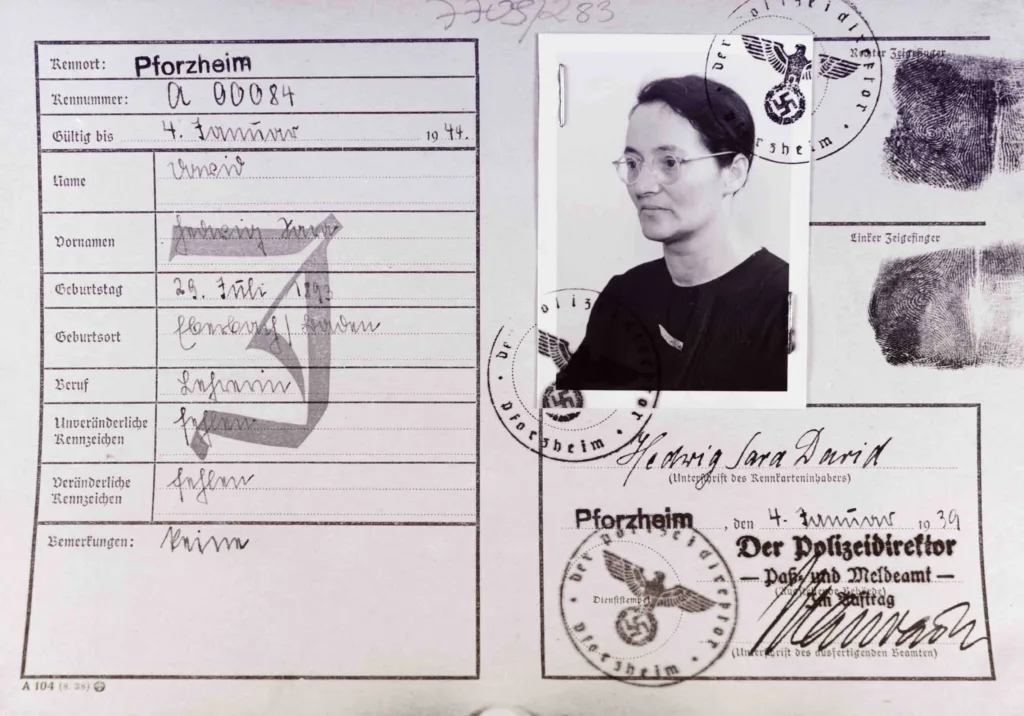 7709/283
Kennort: Pforzheim
Kennummer: A 00084
Gültig bis 4. Januar 1944.
Name David
Vornamen Hedwig Sara
Geburtstag 29. Juli 1893
Geburtsort Eberbach/Baden
Beruf Lehrerin
Unveränderliche
Kennzeichen fehlen
Veränderliche
Kennzeichen fehlen
Bemerkungen: Keine
J
A 104 (8. 38)
der Polizeidirektor
Pforzheim
Rechter Zeigefinger
Linker Zeigefinger
der Polizeidirektor
Pforzheim
Hedwig Sara David
(Unterschrift des Kennkarteninhabers)
Pforzheim, den 4. Januar 1939
Der Polizeidirektor
— Paß- und Meldeamt —
(Ausstellende Behörde)
Im Auftrag
Dienststempel
der Polizeidirektor
Pforzheim
(Unterschrift des ausfertigenden Beamten)